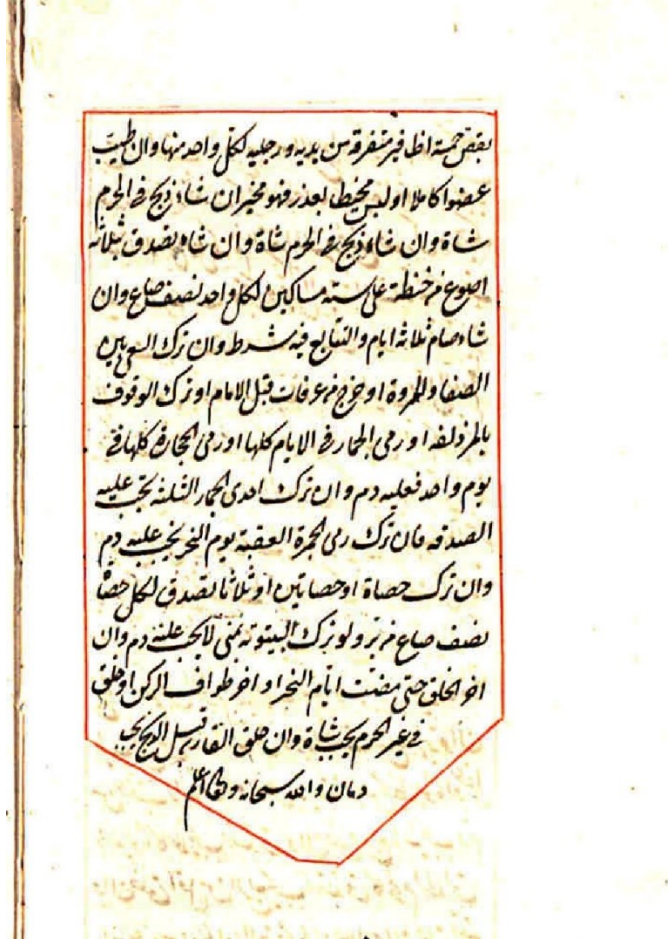 بقص خمسة اظافير متفرقة من يديه ورجليه لكل واحد منها وان طيب
عضوا كاملا او لبس مخيطا بعذر فهو مخير ان شاء ذبح في الحرم
شاة وان شاء ذبح في الحرم شاة وان شاء تصدق بثلاثة
اصوع من حنطة على ستة مساكين لكل واحد نصف صاع وان
شاء صام ثلاثة ايام والتتابع فيه شرط وان ترك السعي بين
الصفا والمروة او خرج من عرفات قبل الامام او ترك الوقوف
بالمزدلفه او رمى الجمار في الايام كلها او رمى الجمار كلها في
يوم واحد فعليه دم وان ترك احدى الجمار الثلثة يجب عليه
الصدقه فان ترك رمى الجمرة العقبة يوم النحر يجب عليه دم
وان ترك حصاة او حصاتين او ثلاثا تصدق لكل حصاة
نصف صاع من بر ولو ترك البيتوتة بمنى لا يجب عليه دم وان
اخر الحلق حتى مضت ايام النحر او اخر طواف الركن او حلق
في غير الحرم يجب شاة وان حلق القارن قبل الذبح يجب
دمان والله سبحانه وتعالى اعلم